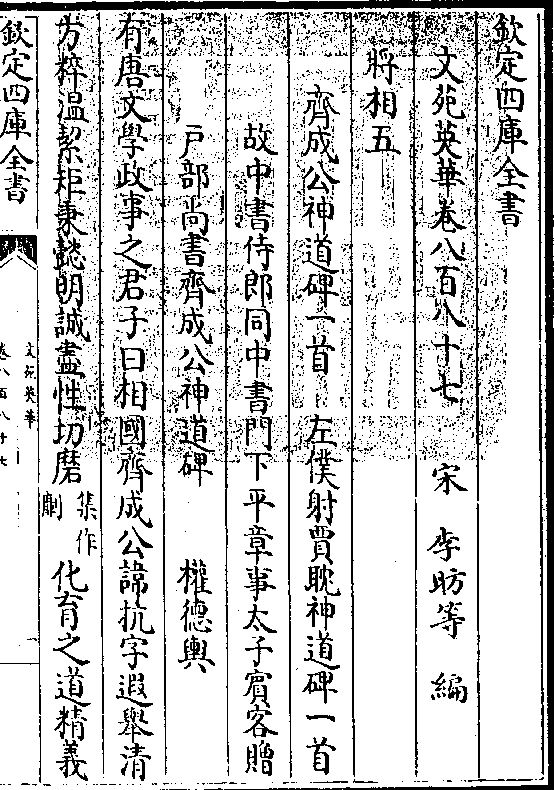 欽定四庫全書
文苑英華卷八百八十七 宋 李昉等 編
將相五
齊成公神道碑一首 左僕射賈耽神道碑一首
故中書侍郎同中書門下平章事太子賓客贈
戸部尚書齊成公神道碑 權德輿
有唐文學政事之君子曰相國齊成公諱抗字遐舉清
方粹温絜矩秉懿明誠盡性切磨集作劘化育之道精義
欽定四庫全書
文苑英華
卷八百八十七
一